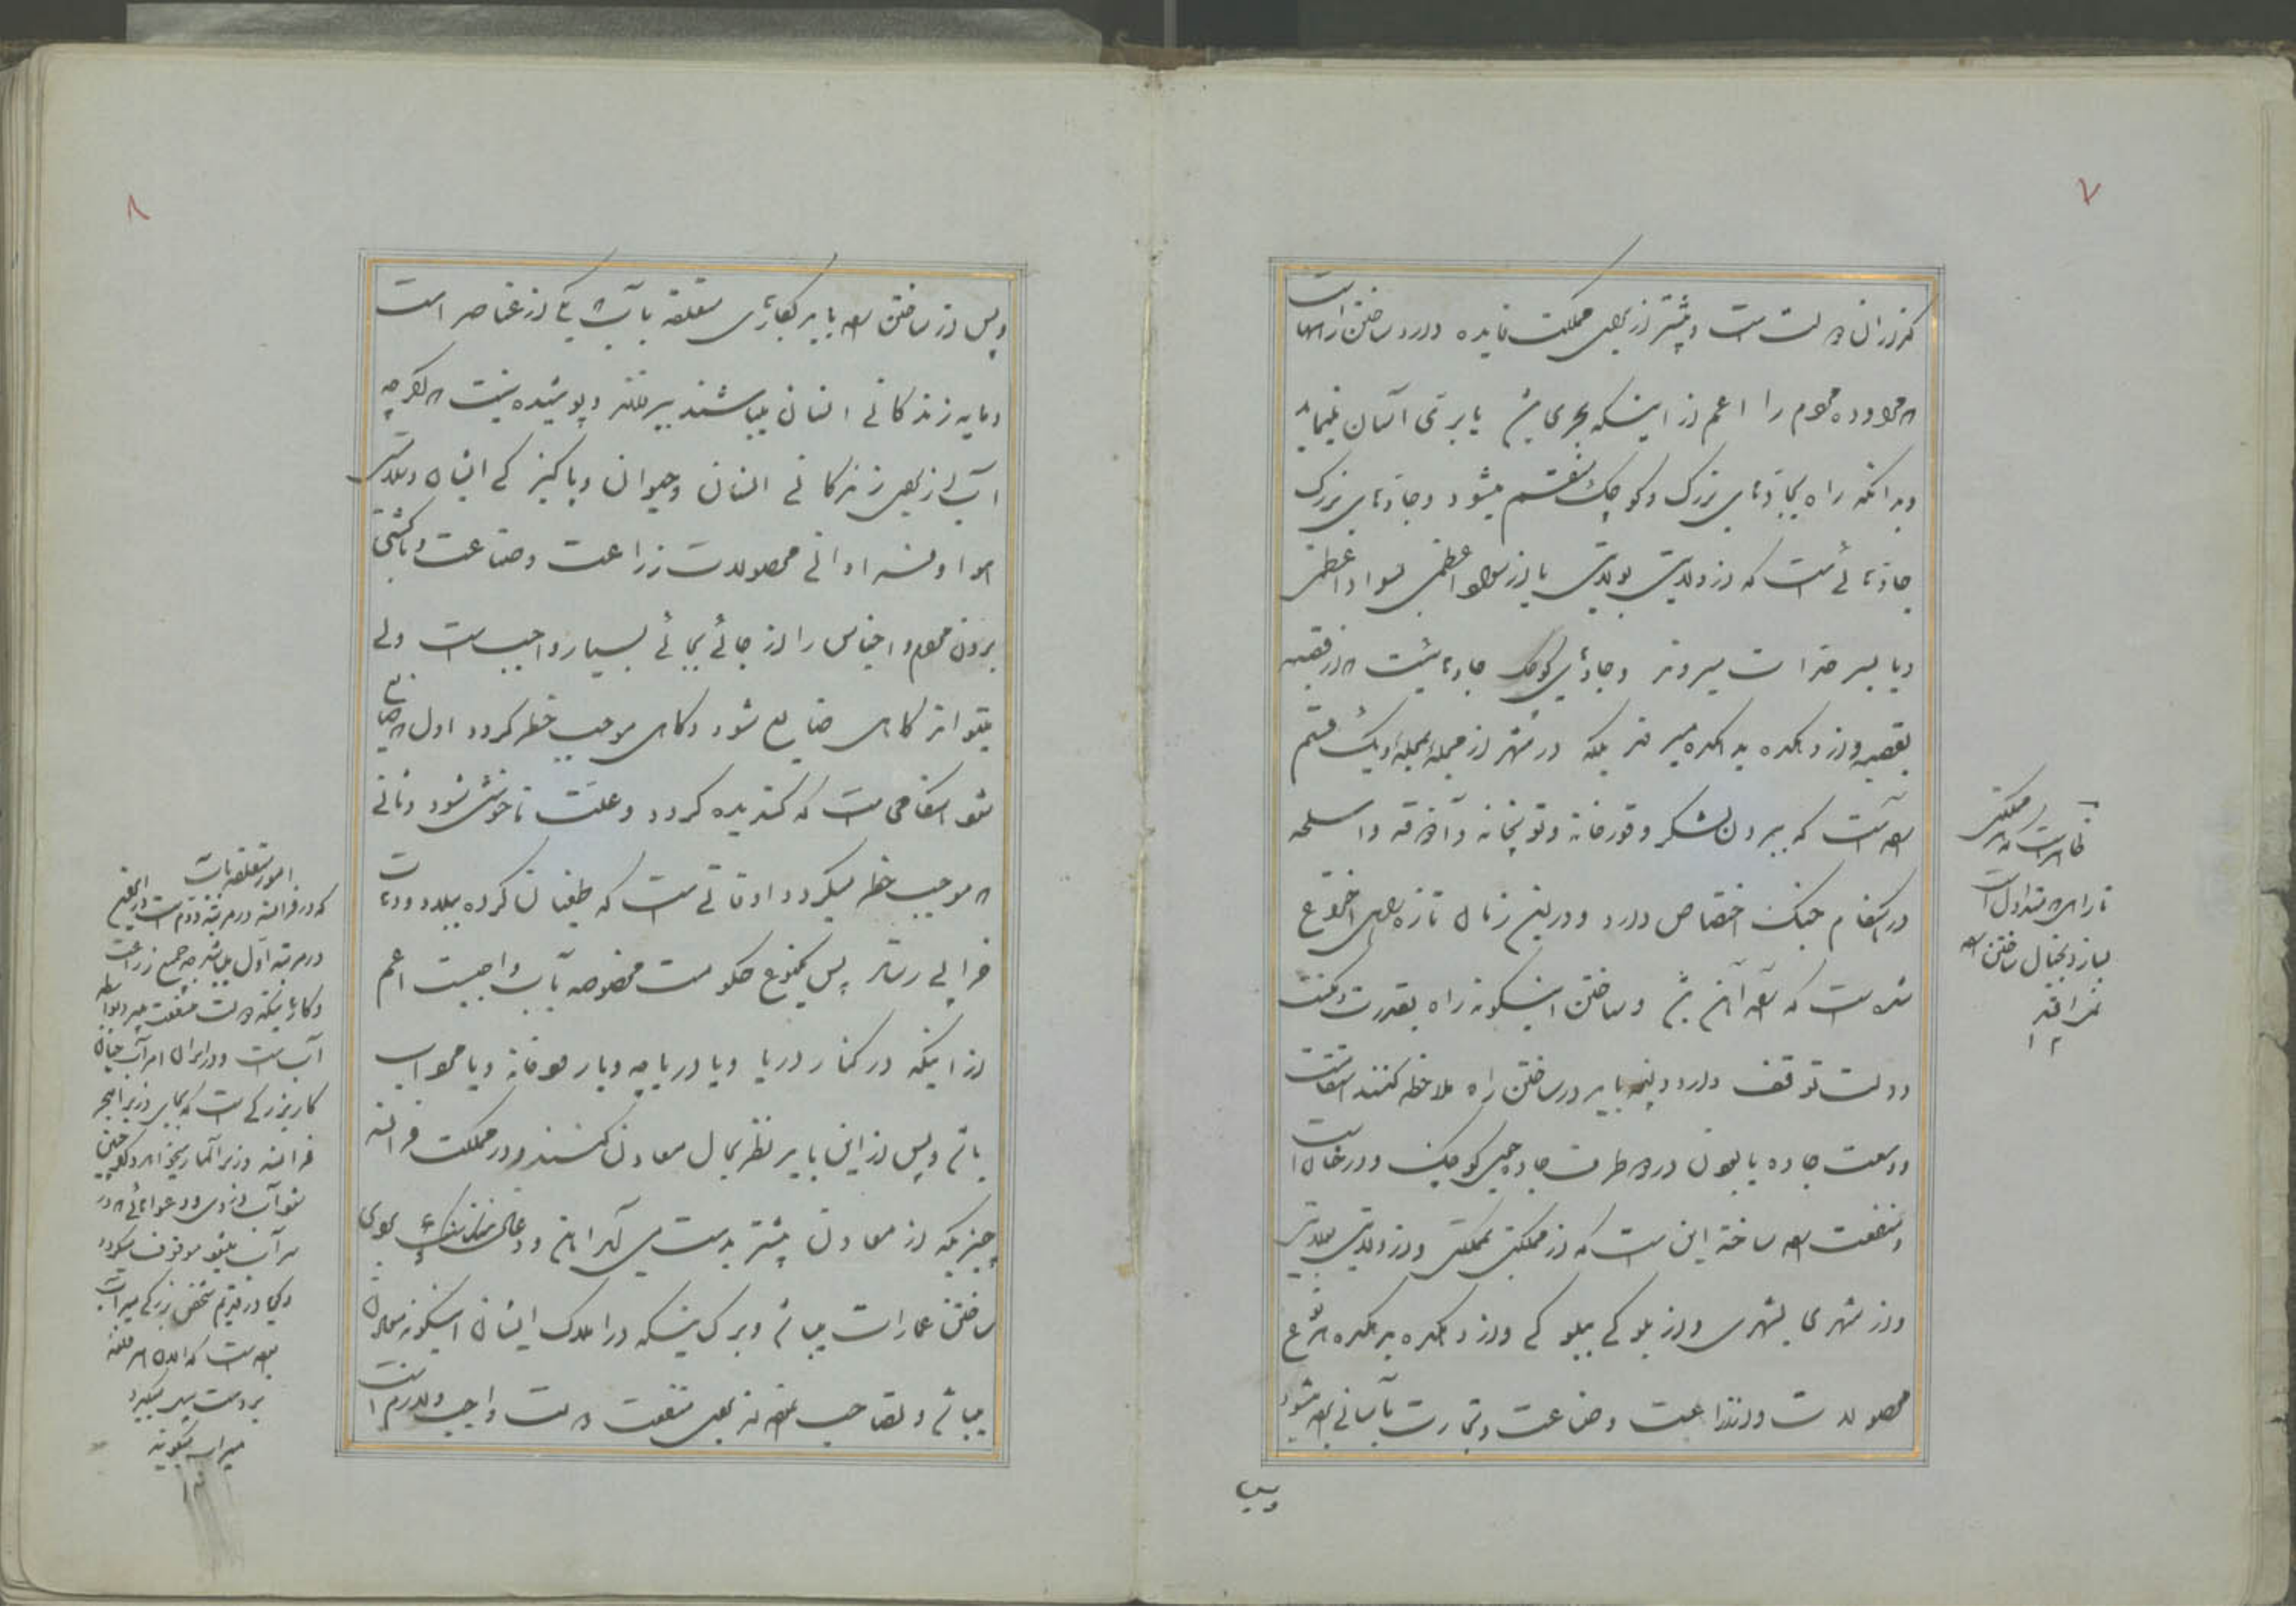 ۷
گذران دولت است و بیشتر از برای مملکت فایده دارد ساختن راهها است
که مراوده مردم را اعم از اینکه بحری باشد یا بری آسان مینماید
و بدانکه راه بجاده‌های بزرگ و کوچک منقسم میشود و جاده‌های بزرگ
جاده‌هائی است که از ولایتی بولایتی یا از سواد اعظمی بسواد اعظمی
و یا بسرحدات میروند و جاده‌های کوچک جاده‌هائیست که از قصبه
بقصبه و از دهکده بدهکده میروند بلکه در شهر از محله بمحله و یک قسم
راه است که ببردن لشکر و قورخانه و توپخانه و آذوقه و اسلحه
در هنگام جنگ اختصاص دارد و در این زمان تازه راهی اختراع
شده است که راه آهن باشد و ساختن اینگونه راه بقدرت و مکنت
دولت توقف دارد و اینهم باید در ساختن راه ملاحظه کنند استقامت
و وسعت جاده یا بودن در دو طرف جاده جوی کوچک و درختان است
و منفعت راه ساخته این است که از مملکتی بمملکتی و از ولایتی بولایتی
و از شهری بشهری و از بلوکی ببلوکی و از دهکده بدهکده هر نوع
محصولات و زراعت و صناعت و تجارت بآسانی برده میشود
ظاهر است که هر مملکتی
تا راهی متداول است
نیاز و بخیال ساختن راه
نمی‌افتد
۱۲
و پس
۸
و پس از ساختن راه باید بکارهای متعلقه بآب که یکی از عناصر است
و مایه زندگانی انسان میباشند بپردازند و پوشیده نیست که اگرچه
آب از برای زندگانی انسان و حیوان و پاکیزگی ایشان و بلاد و
هوا و فراوانی محصولات زراعت و صناعت و با کشتی
بردن مردم و اجناس را از جائی بجائی بسیار واجب است ولی
میتواند گاهی ضایع شود و گاهی موجب خطر گردد اول که ضایع
شود هنگامی است که گندیده گردد و علت ناخوشی شود و ثانی
که موجب خطر میگردد اوقاتی است که طغیان کرده ببلاد و دهات
خرابی رساند پس یکنوع حکومت مخصوصه بآب واجبست اعم
از اینکه در کنار دریا و یا دریاچه و یا رودخانه و یا مرداب
باشد و پس از این باید نظر بحال معادن کنند و در مملکت فرانسه
چیزیکه از معادن بیشتر بدست می‌آید آهن و ذغال سنگ و سنگ برای
ساختن عمارات میباشد و بر کسانیکه در املاک ایشان اینگونه معادن
میباشد و بصاحب نفع از برای منفعت دولت واجب و لازم است
امور متعلقه بآب
که در فرانسه در مرتبه دوم است در اینجا
در مرتبه اول میباشد چه جمیع زراعت
و کارهائیکه دولت منفعت میبرد بواسطه
آب است و در ایران امر آب چنان
کار بزرگی است که بجای وزیر امور
فرانسه وزیر آبها میخواهد و همچنین
شود آب دزدی و دعواهائی که در
سر آب میشود موقوف میگردد
و گویا در قدیم شخص بزرگی میرآب
بوده است که الان هر ملتفته
بر دست بیل میگیرد
میراب میگویند
۱۲